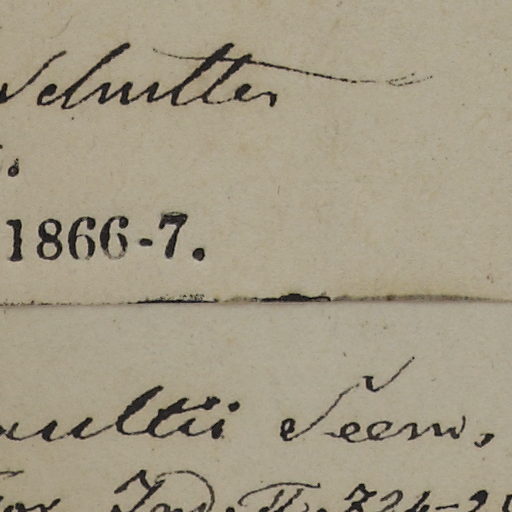 Schultes
1866-7.
aultii Seem.
Ind. II. 324-2